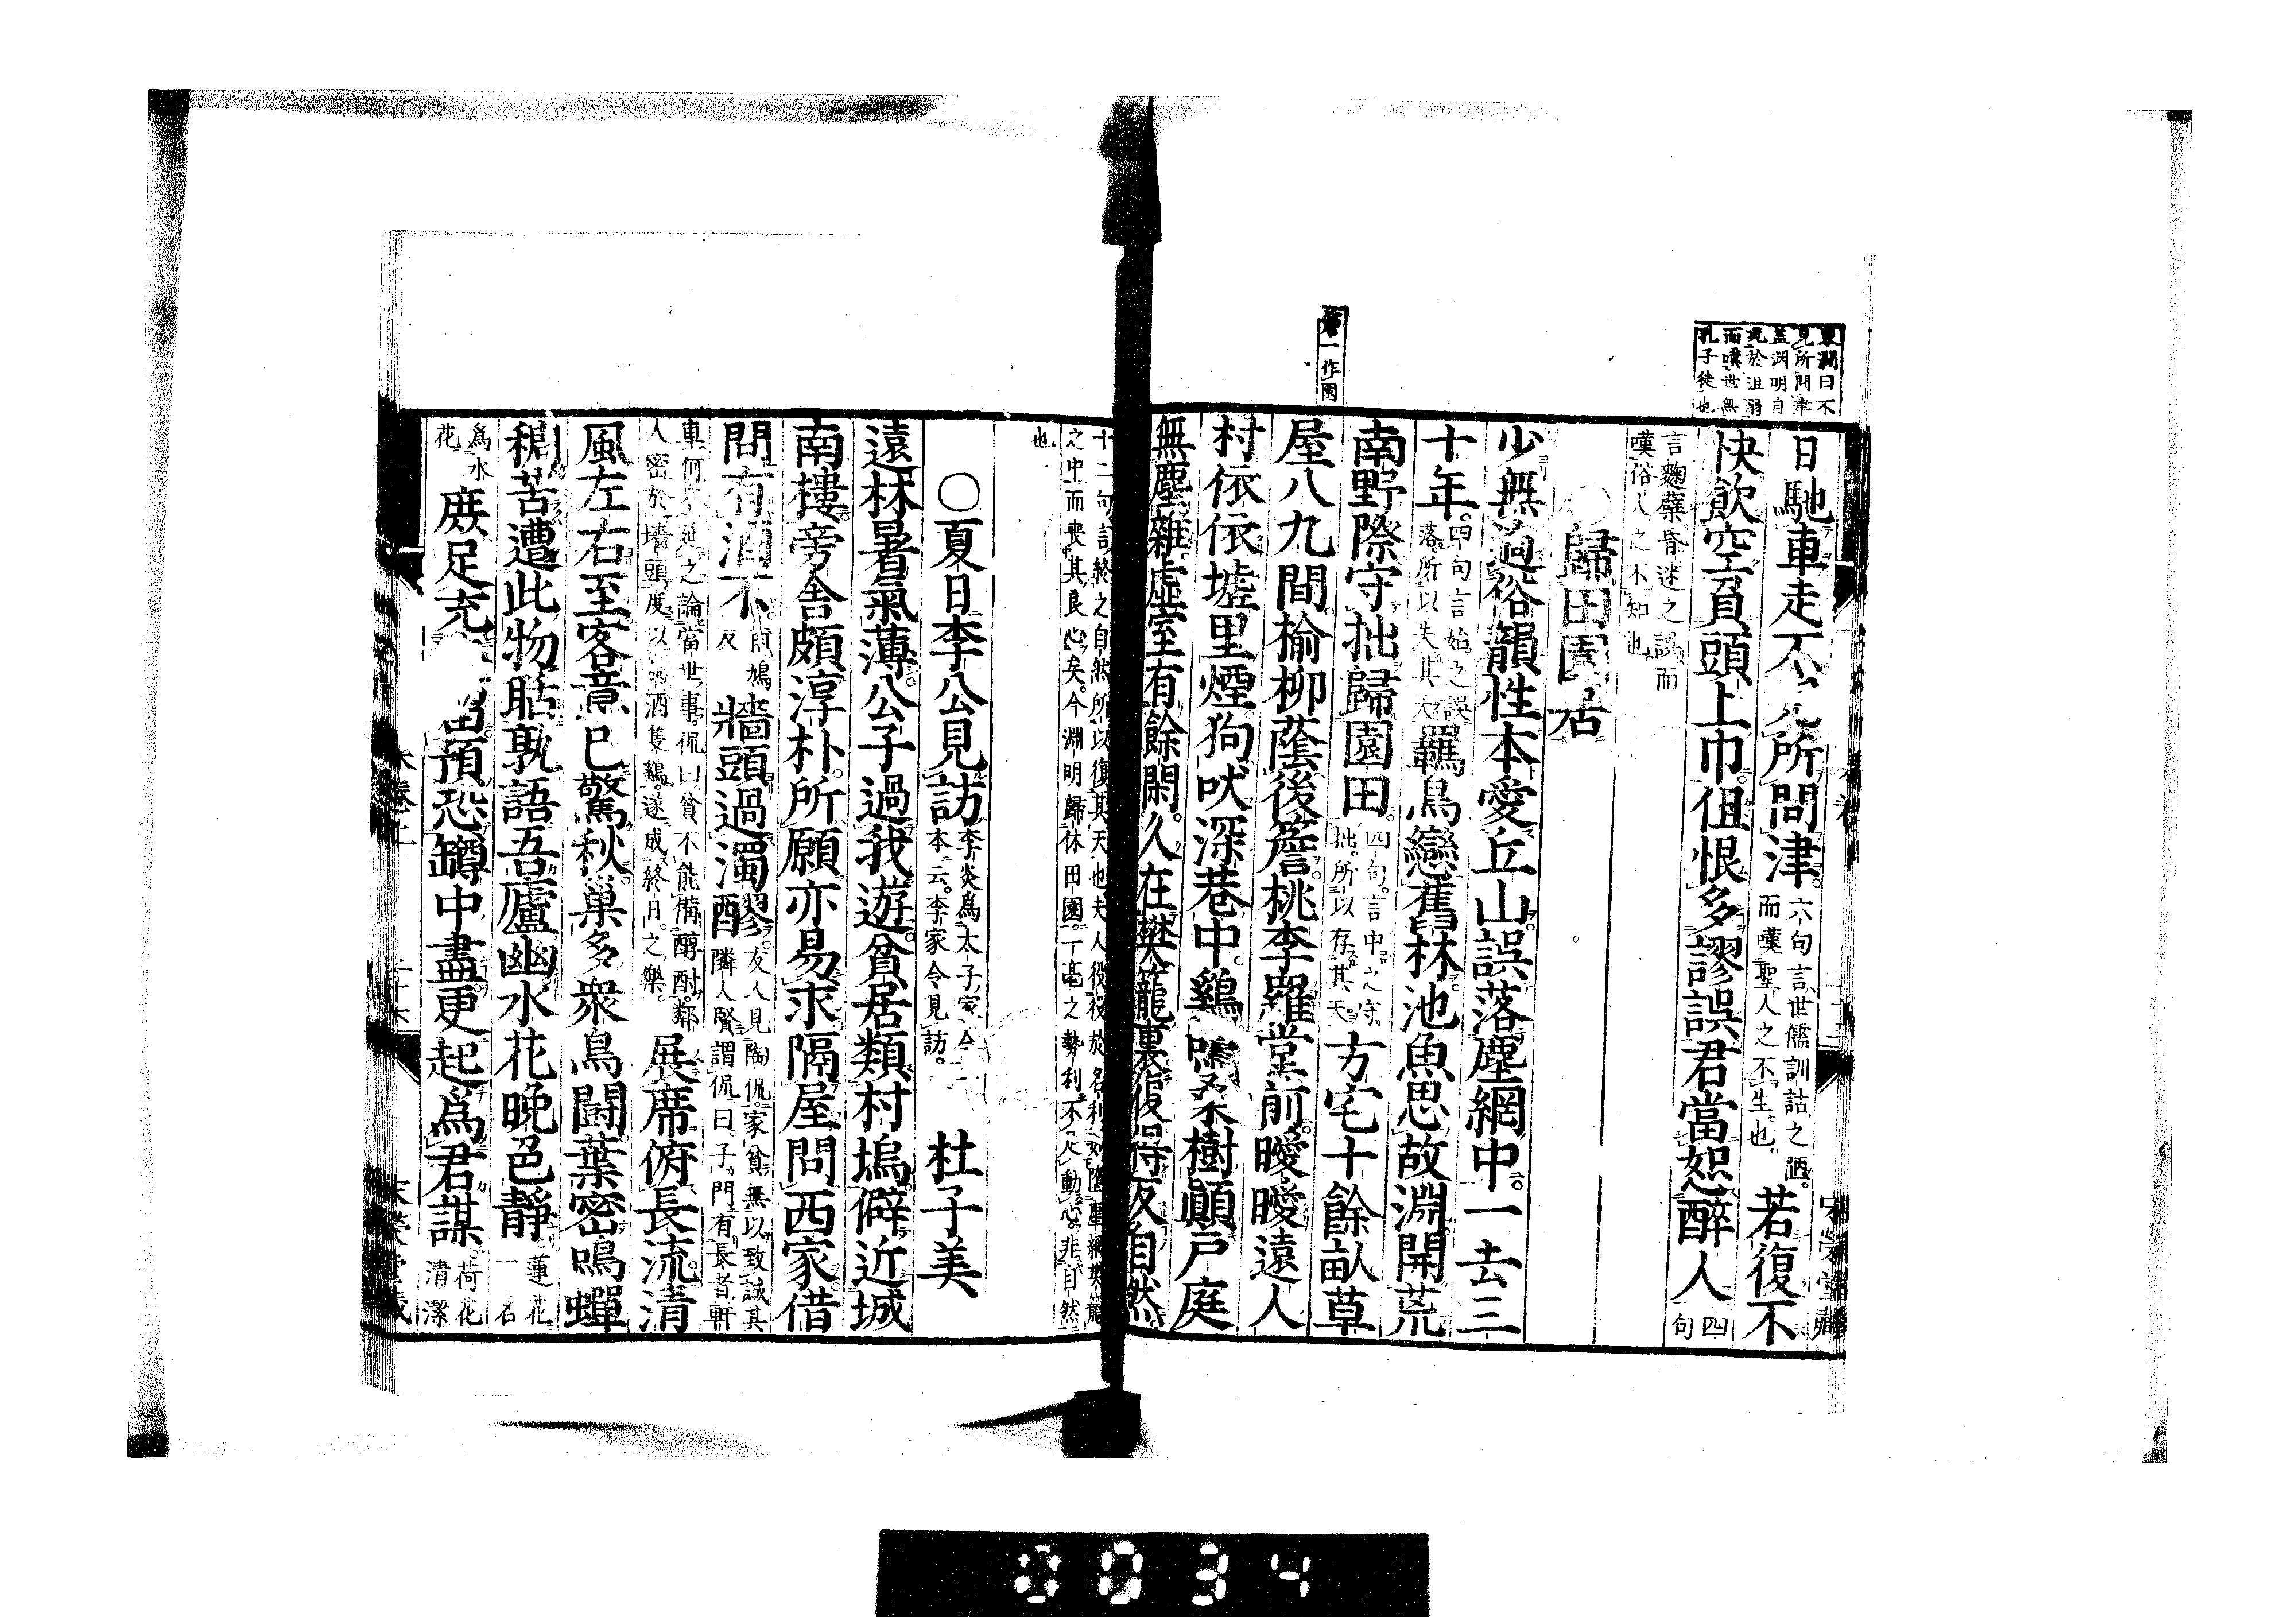 東澗曰不
見所問津
蓋淵明自
況於沮溺
而嘆世無
孔子徒也
日馳車走不見所問津六句言世儒訓詁之陋
而嘆聖人之不生也若復不
快飲空負頭上巾但恨多謬誤君當恕醉人四
句
言麴蘖昏迷之誤而
嘆俗人之不知也
○歸田園居
少無適俗韻性本愛丘山誤落塵網中一去三
十年四句言始之誤
落所以失其天羈鳥戀舊林池魚思故淵開荒
南野際守拙歸園田四句言中之守
拙所以存其天方宅十餘畝草
一作園
屋八九間榆柳蔭後簷桃李羅堂前曖曖遠人
村依依墟里煙狗吠深巷中鷄鳴桑樹顚戶庭
無塵雜虛室有餘閑久在樊籠裏復得返自然
十二句言終之自然所以復其天也夫人役役於名利如墮塵網樊籠
之中而喪其良心矣今淵明歸休田園一毫之勢利不入動心非自然
也
○夏日李公見訪李炎爲太子家令
本云李家令見訪 杜子美
遠林暑氣薄公子過我遊貧居類村塢僻近城
南樓旁舍頗淳朴所願亦易求隔屋問西家借
問有酒不
反牆頭過濁醪友人見陶侃家貧無以致誠其
隣人賢謂侃曰子門有長者軒
車何不延之論當世事侃曰貧不能備醇酎鄰
人密於墻頭度以濁酒隻鷄遂成終日之樂展席俯長流清
風左右至客意已驚秋巢多衆鳥鬪葉密鳴蟬
稠苦遭此物聒孰語吾廬幽水花晚色靜蓮花
一名
爲水
花庶足充淹留預恐罇中盡更起爲君謀荷花
清潔